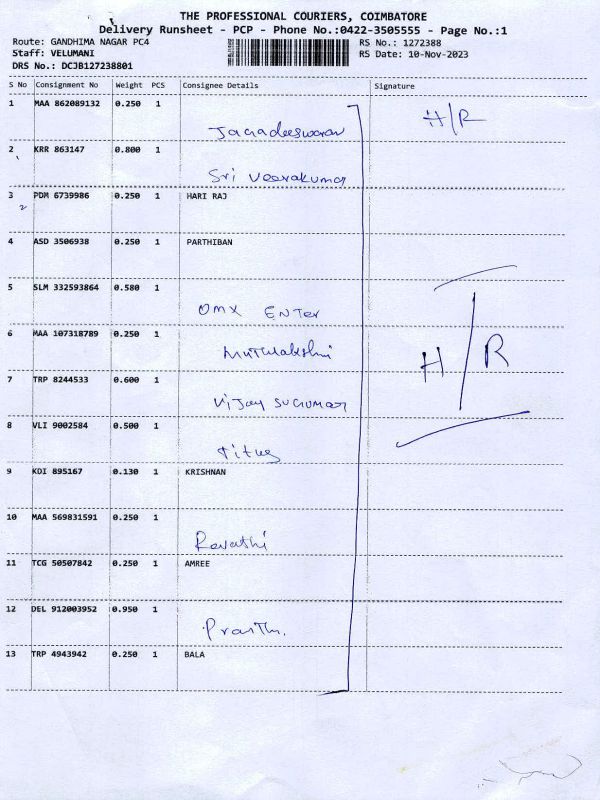 THE PROFESSIONAL COURIERS, COIMBATORE
Delivery Runsheet - PCP - Phone No.:0422-3505555 - Page No.:1
Route: GANDHIMA NAGAR PC4 RS No.: 1272388
Staff: VELUMANI RS Date: 10-Nov-2023
DRS No.: DCJB127238801
S No Consignment No Weight PCS Consignee Details Signature
1 MAA 862089132 0.250 1 H/R
Jagadeeswaran
2 KRR 863147 0.800 1
Sri Veerakumar
3 PDM 6739986 0.250 1 HARI RAJ
2
4 ASD 3506938 0.250 1 PARTHIBAN
5 SLM 332593864 0.580 1
OMX ENTer
6 MAA 107318789 0.250 1
Muthulakshmi
H/R
7 TRP 8244533 0.600 1
Vijay Sugumar
8 VLI 9002584 0.500 1
Titus
9 KDI 895167 0.130 1 KRISHNAN
10 MAA 569831591 0.250 1
Revathi
11 TCG 50507842 0.250 1 AMREE
12 DEL 912003952 0.950 1
13 TRP 4943942 0.250 1 BALA